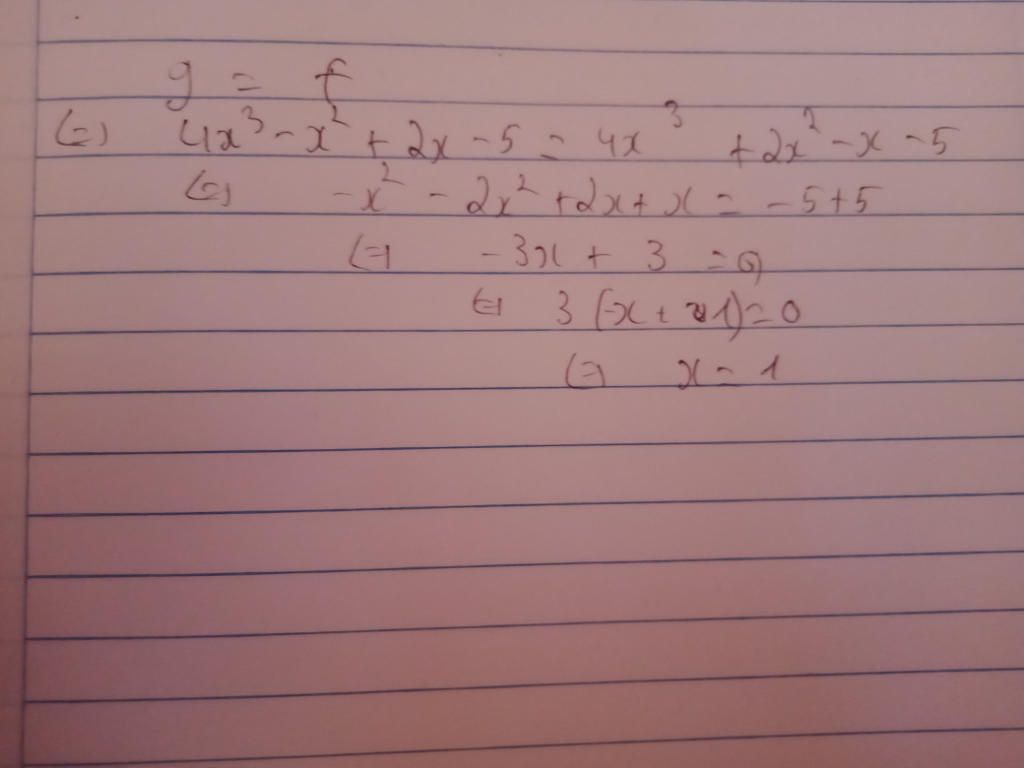 g = f
(=) 4x³ - x² + 2x - 5 = 4x³ + 2x² - x - 5
(=) -x² - 2x² + 2x + x = -5+5
(=) -3x + 3 = 0
(=) 3(-x + 1) = 0
(=) x = 1